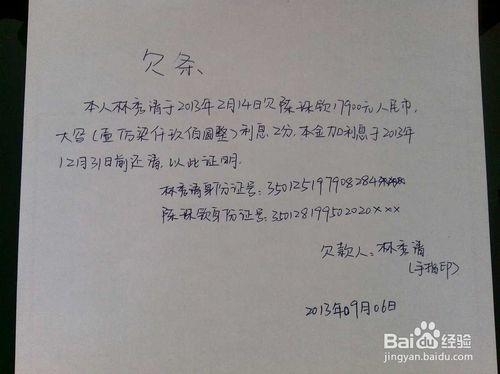 欠条
本人林秀清于2013年2月14日欠陈珠钦17900元人民币,
大写(壹万柒仟玖佰圆整)利息2分,本金加利息于2013年
12月31日前还清,以此证明。
林秀清身份证号:350125197908284
陈珠钦身份证号:350128199502020×××
欠款人:林秀清
(手指印)
2013年09月06日
Baidu经验
jingyan.baidu.com